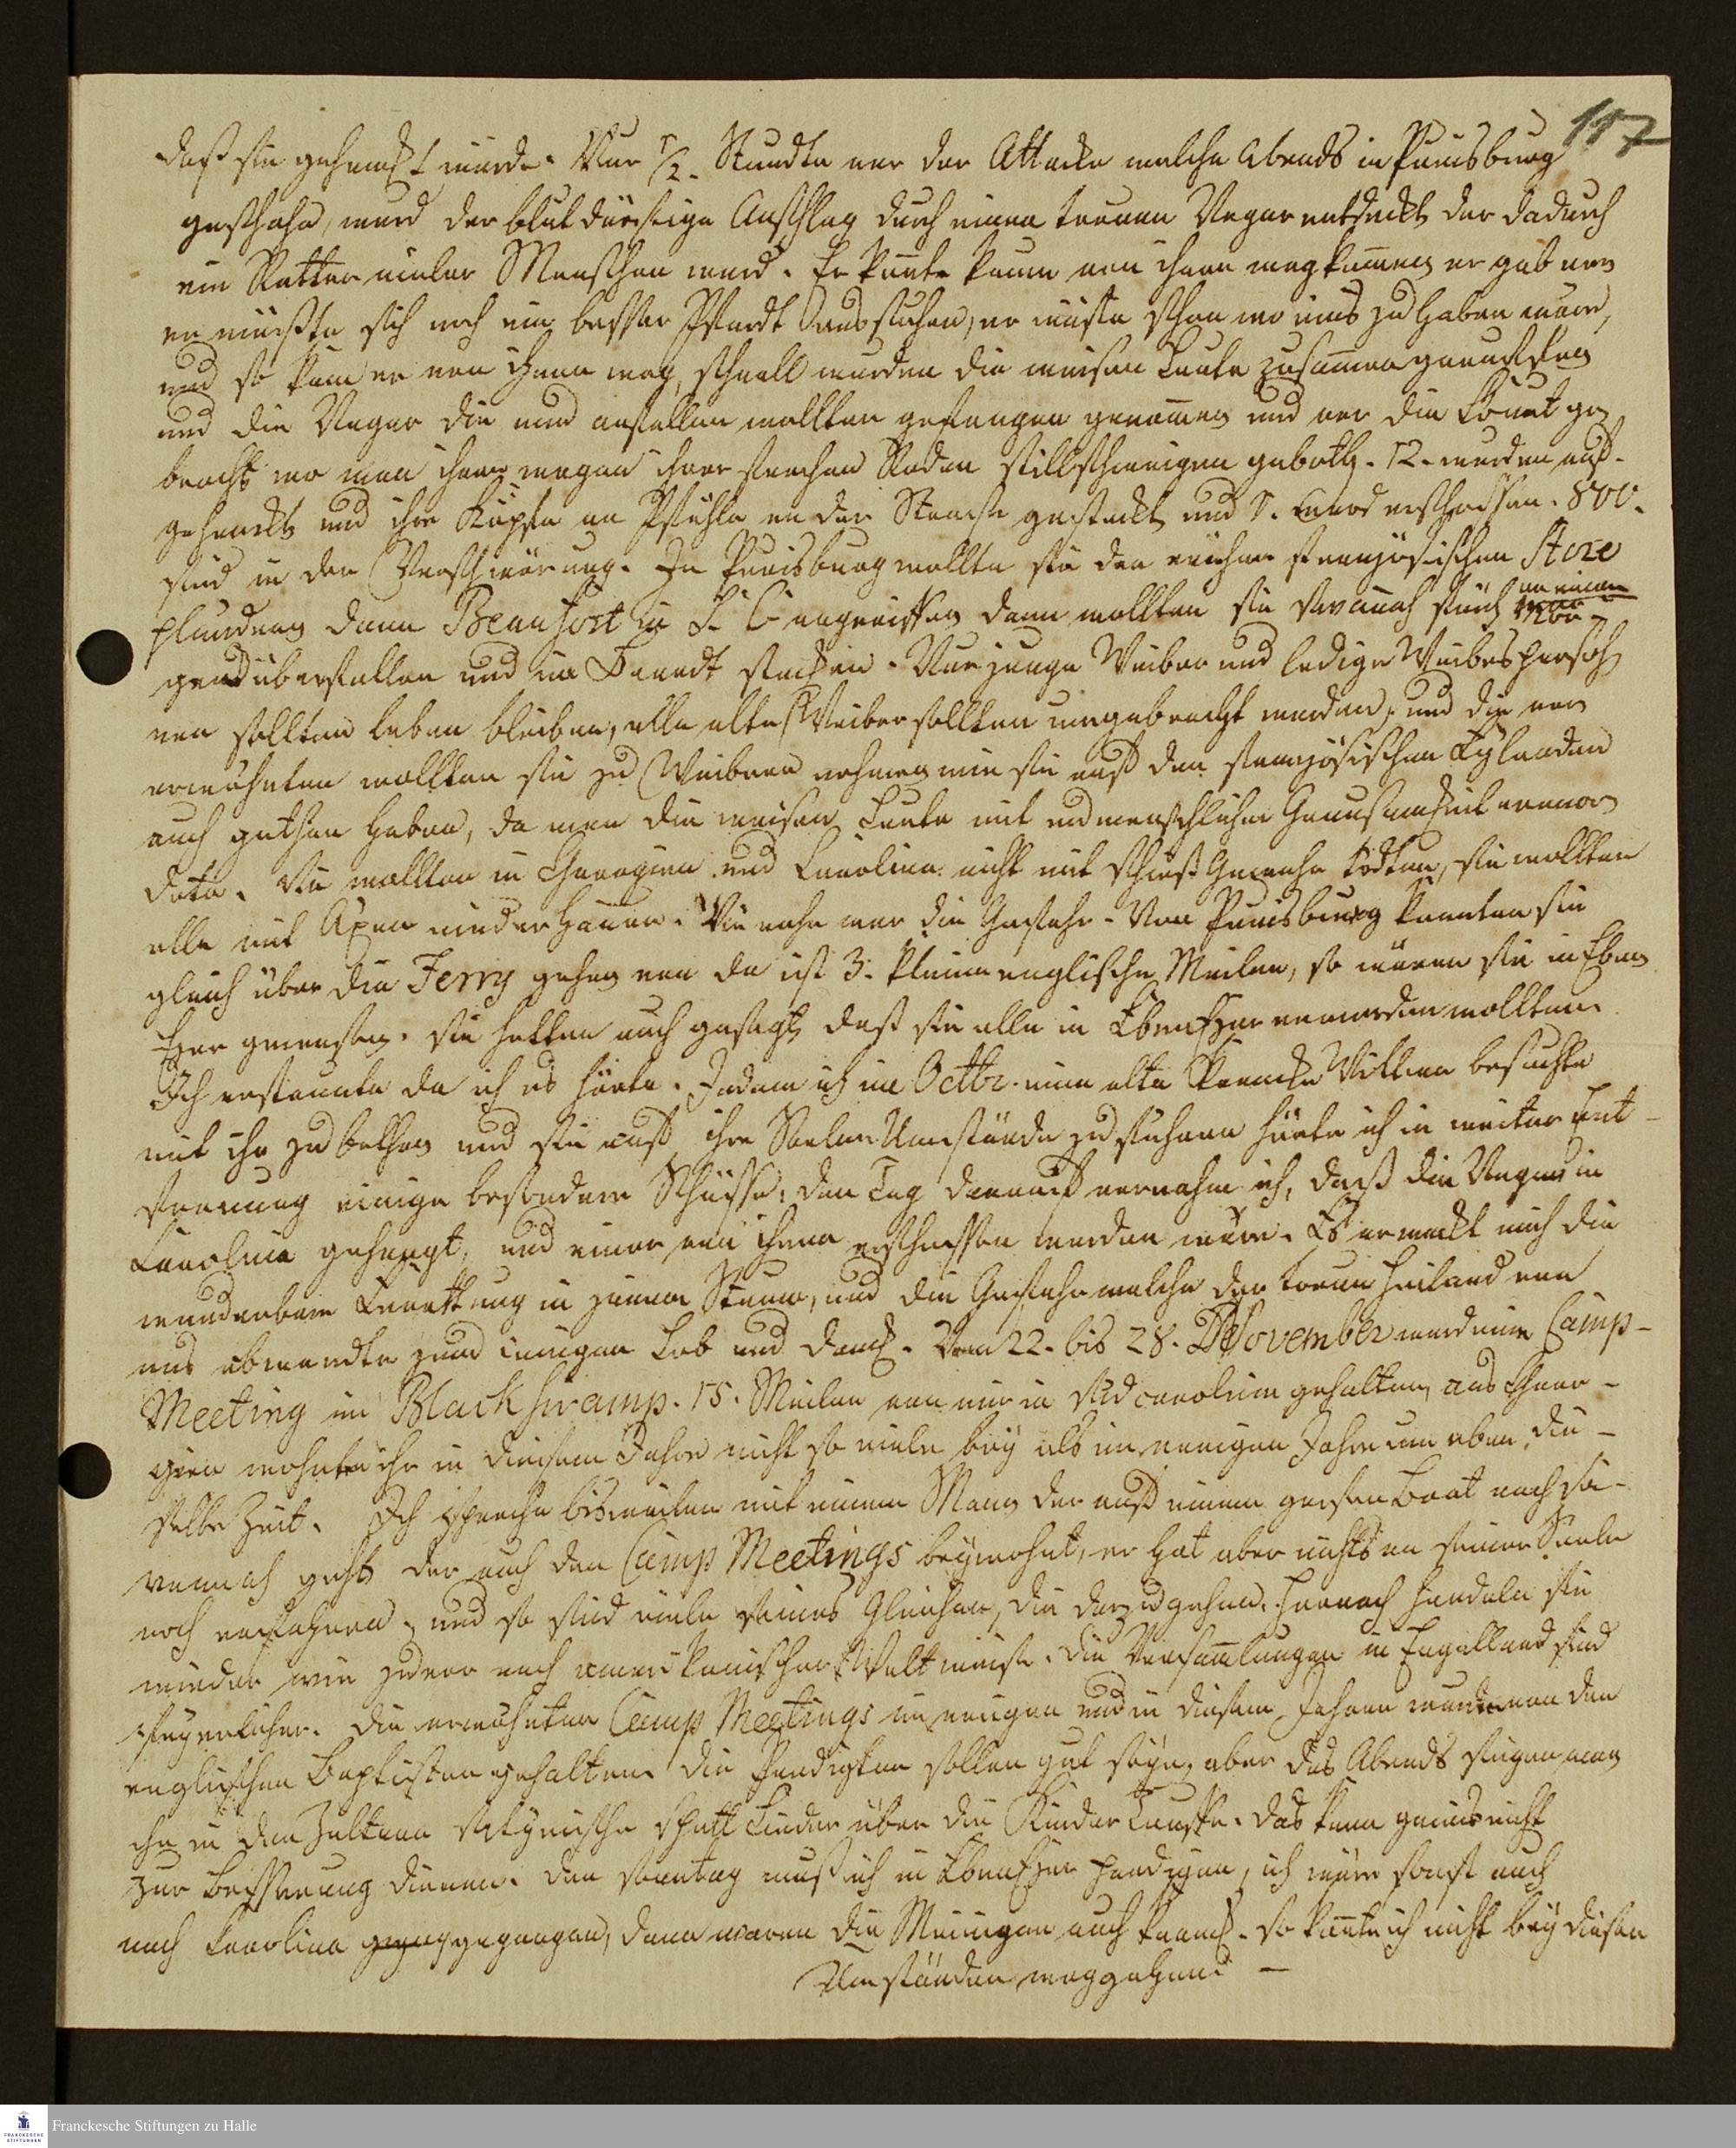 117
daß sie gehemt wurde. Nur 1/2. Stunde vor der Attacke welche Abends in Purisburg
geschahe, ward der blutdürstige Anschlag durch einen treuen Neger entdeckt der dadurch
ein Retter vieler Menschen ward. Er konnte kaum von ihnen wegkommen er gab vor
er müßte sich noch ein besser Pferdt aussuchen, er wüste schon wo eins zu haben wäre,
und so kam er von ihnen weg, schnell wurden die weisen Leute zusammen
und die Neger die nun anfallen wollten gefangen genommen und vor die Court ge
bracht wo man ihnen wegen ihrer frechen Reden stillschweigen geboth. 12. wurden auf-
gehenckt und ihre Köpfe an Pfähle an der Strasse gesteckt und 1. ward erschossen. 800.
sind in der Verschwörung. In Purisburg wollten sie den reichen französischen Store
plündern dann Beaufort in S. C angreiffen dann wollten sie Savanah früh an einem Mor-
gend überfallen und in Brandt stecken. Nur junge Weiber und ledige Weibespersoh
nen sollten leben bleiben, alle alte Weiber sollten umgebracht werden, und die vor
erwehnten wollten sie zu Weibern nehmen wie sie auf den französischen Eylanden
auch gethan haben, da man die weisen Leute mit unmenschlicher Grausamkeit ermor
dete. Sie wollten in Georgien und Carolina nicht mit schieß Gewehr tödten, sie wollten
alle mit Axen niederhauen. Wie nahe war die Gefahr. Von Purisburg konnten sie
gleich über die Ferry gehen von da ist 3. kleine englische Meilen, so wären sie in Eben
Ezer gewesen. Sie hatten auch gesagt, daß sie alle in EbenEzer ermorden wollten.
Ich erstaunte da ich es hörte. Indem ich im Octbr. eine alte krancke Wittwe besuchte
mit ihr zu bethen und sie auf ihre Seelen Umstände zu führen hörte ich in weiter Ent-
fernung einige besondere Schüsse, den Tag darauf vernahm ich, daß die Neger in
Carolina gehengt, und einer von ihnen erschossen worden wäre. Es erweckt mich die
wunderbare Errettung in jenem Sturm, und die Gefahr welche der treue Heiland von
uns abwendte zum innigen Lob und Danck. Vom 22. bis 28. November ward eine Camp-
Meeting in Black Swamp. 15. Meilen von mir in Südcarolina gehalten, aus Geor-
gien wohnten ihr in diesem Jahre nicht so viele bey als im vorigen Jahre um eben die-
selbe Zeit. Ich spreche bisweilen mit einem Mann der auf einem grosen Boot nach Sa-
vannah geht der auch den Camp Meetings beywohnt, er hat aber nichts an seiner Seele
noch erfahren, und so sind viele seines Gleichen, die dazu gehen. Hernach handeln sie
wieder wie zuvor nach amerikanischer Welt weise. Die Versammlungen in Engelland sind
feyerlicher. Die erwehnten Camp Meetings im vorigen und in diesem Jahren wurden von den
englischen Baptisten gehalten. Die Predigten sollen gut seyn, aber des Abends singen man
che in den Zelten satyrische Spott Lieder über die Kinder Tauffe. Das kann gewis nicht
zur Besserung dienen. Den Sonntag muß ich in EbenEzer predigen, ich wäre sonst auch
nach Carolina gegangen, dann waren die Meinigen auch kranck. So konnte ich nicht bey diesen
Umständen weggehen. —
Franckesche Stiftungen zu Halle